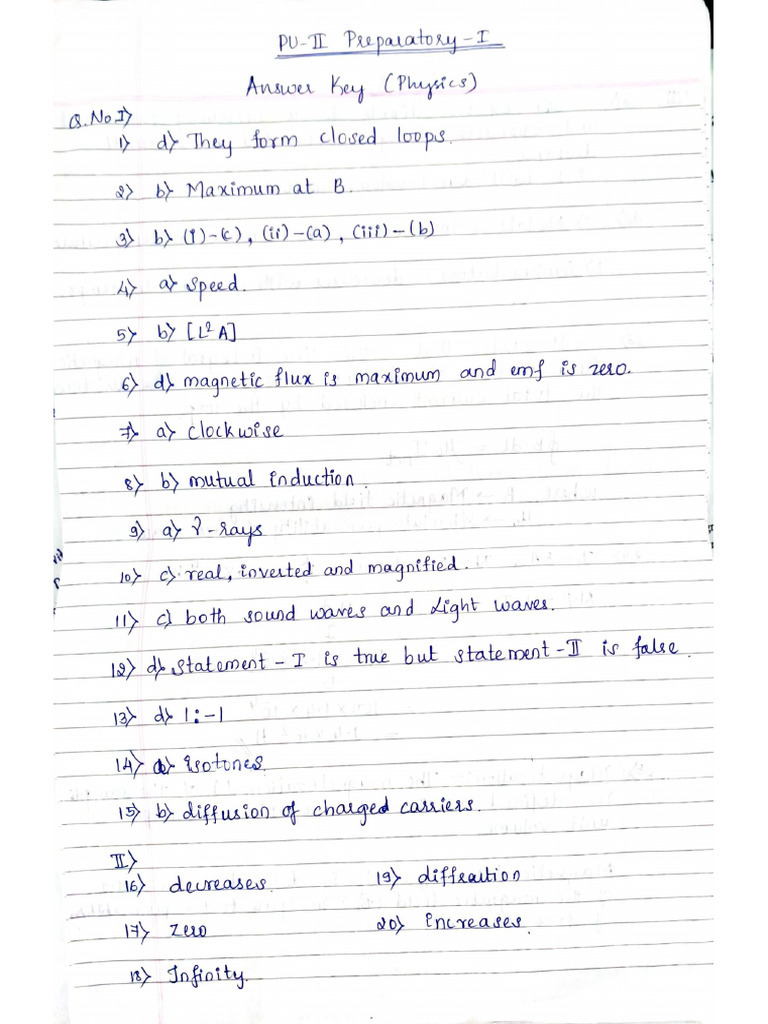 PU-II Preparatory-I
Answer Key (Physics)
Q.No.I)
1) d) They form closed loops.
2) b) Maximum at B.
3) b) (i)-(c), (ii)-(a), (iii)-(b)
4) a) speed.
5) b) [L²A]
6) d) magnetic flux is maximum and emf is zero.
7) a) clockwise
8) b) mutual induction.
9) a) γ-rays
10) c) real, inverted and magnified.
11) c) both sound waves and Light waves.
12) d) statement-I is true but statement-II is false.
13) d) 1:-1
14) isotones.
15) b) diffusion of charged carriers.
II)
16) decreases. 19) diffraction
17) zero 20) increases.
18) Infinity.